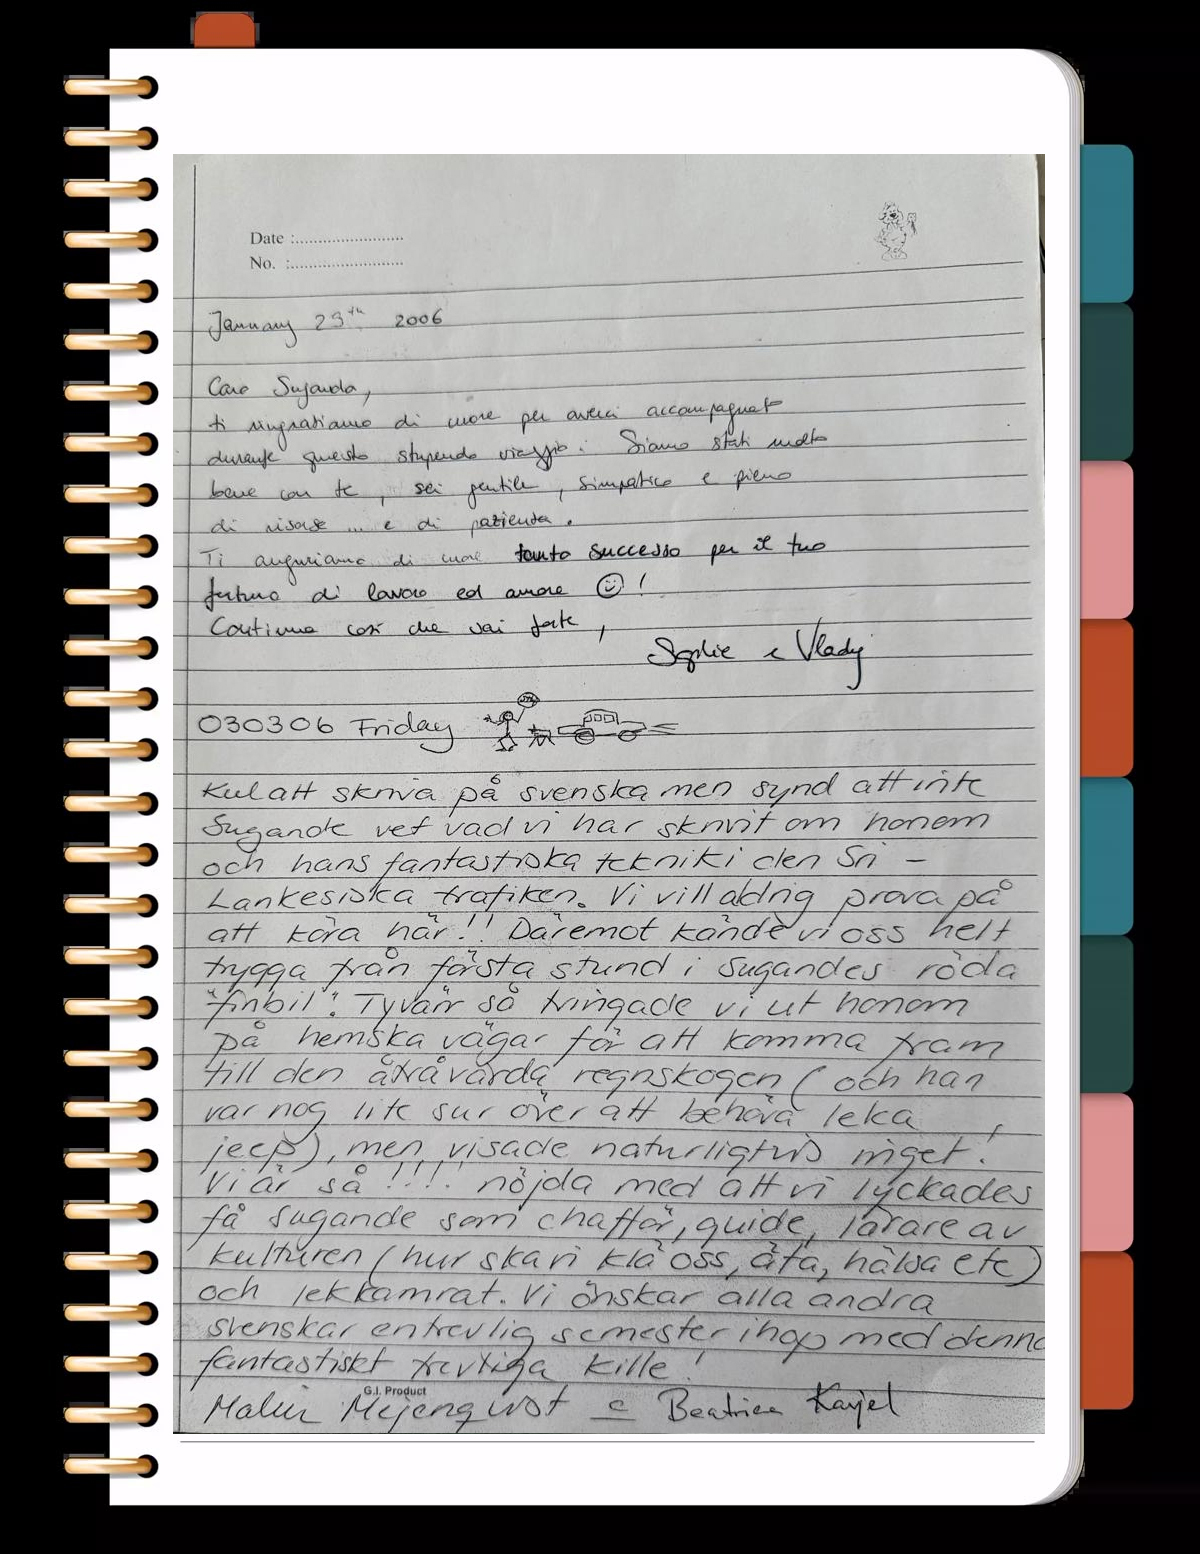 Date :........................
No. :.........................
January 23th 2006
Caro Suganda,
ti ringraziamo di cuore per averci accompagnato
durante questo stupendo viaggio. Siamo stati molto
bene con te, sei gentile, simpatico e pieno
di risorse ... e di pazienza.
Ti auguriamo di cuore tanto successo per il tuo
futuro di lavoro ed amore ☺ !
Continua così che vai forte,
Sophie e Vlady
030306 Friday
Kul att skriva på svenska men synd att inte
Sugande vet vad vi har skrivit om honom
och hans fantastiska teknik i den Sri -
Lankesiska trafiken. Vi vill aldrig prova på
att köra här!! Däremot kände vi oss helt
trygga från första stund i Sugandes röda
"finbil". Tyvärr så tvingade vi ut honom
på hemska vägar för att komma fram
till den åtråvärda regnskogen (och han
var nog lite sur över att behöva leka
jeep), men visade naturligtvis inget!
Vi är så !!!! nöjda med att vi lyckades
få Sugande som chafför, guide, lärare av
kulturen (hur ska vi klä oss, äta, hälsa etc)
och lekkamrat. Vi önskar alla andra
svenskar en trevlig semester ihop med denna
fantastiskt trevliga kille!
G.I. Product
Malin & Beatrice